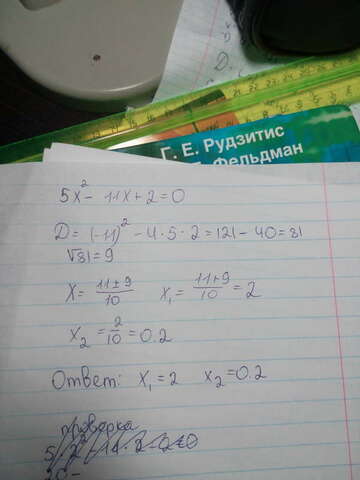 Г. Е. Рудзитис
Фельдман
5x² - 11x + 2 = 0
D = (-11)² - 4 · 5 · 2 = 121 - 40 = 81
√81 = 9
x = 11±9/10 x₁ = 11+9/10 = 2
x₂ = 2/10 = 0.2
Ответ: x₁ = 2 x₂ = 0.2
проверка